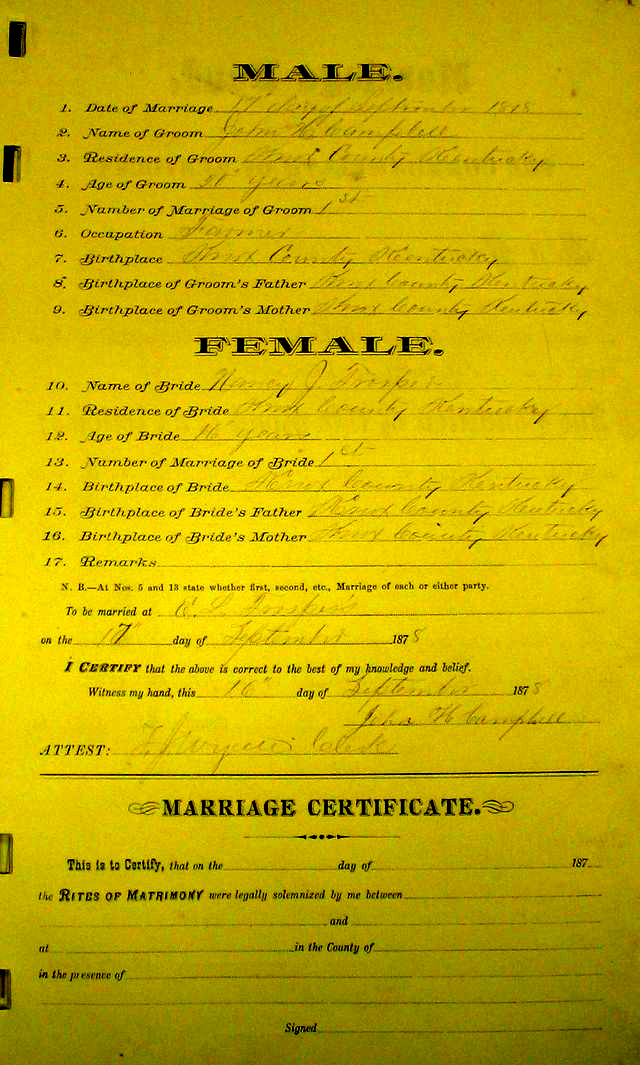 MALE.
1. Date of Marriage 17" day of September 1878
2. Name of Groom John H. Campbell
3. Residence of Groom Knox County Kentucky
4. Age of Groom 20 years
5. Number of Marriage of Groom 1st
6. Occupation Farmer
7. Birthplace Knox County Kentucky
8. Birthplace of Groom's Father Knox County Kentucky
9. Birthplace of Groom's Mother Knox County Kentucky
FEMALE.
10. Name of Bride Nancy J
11. Residence of Bride Knox County Kentucky
12. Age of Bride 16 years
13. Number of Marriage of Bride 1st
14. Birthplace of Bride Knox County Kentucky
15. Birthplace of Bride's Father Knox County Kentucky
16. Birthplace of Bride's Mother Knox County Kentucky
17. Remarks
N. B.—At Nos. 5 and 13 state whether first, second, etc., Marriage of each or either party.
To be married at
on the 17" day of September 1878
I CERTIFY that the above is correct to the best of my knowledge and belief.
Witness my hand, this 16" day of September 1878
John H Campbell
ATTEST: Clerk
MARRIAGE CERTIFICATE.
This is to Certify, that on the day of 187
the RITES OF MATRIMONY were legally solemnized by me between
and
at in the County of
in the presence of
Signed